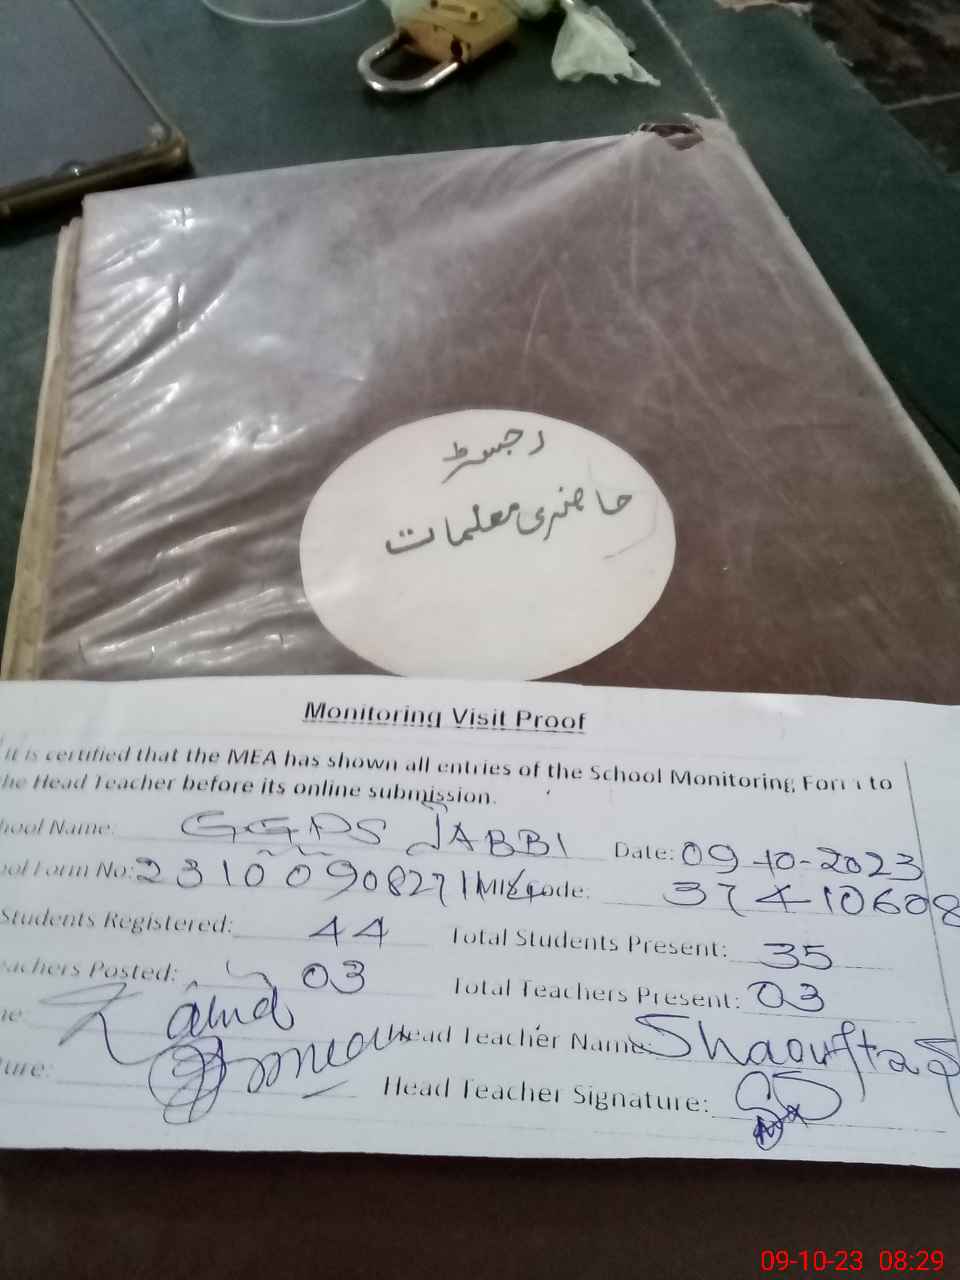 رجسٹر
حاضری معلمات
Monitoring Visit Proof
it is certified that the MEA has shown all entries of the School Monitoring Form to
he Head Teacher before its online submission.
hool Name: GGPS JABBI Date: 09-10-2023
ool Form No: 23100908271 Code: 37410608
Students Registered: 44 Total Students Present: 35
eachers Posted: 03 Total Teachers Present: 03
me: Head Teacher Name: Shagufta S
ture: Head Teacher Signature:
09-10-23 08:29